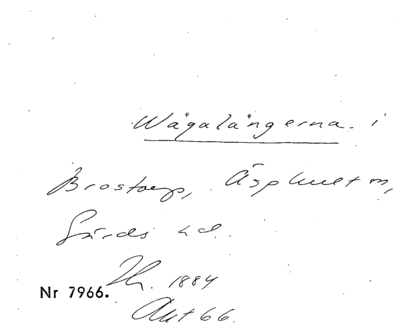 Wägalängerna i
Brostorp, Äsphult m,
Gärds hd.
Nr 7966. Hr. 1884
Akt 66.